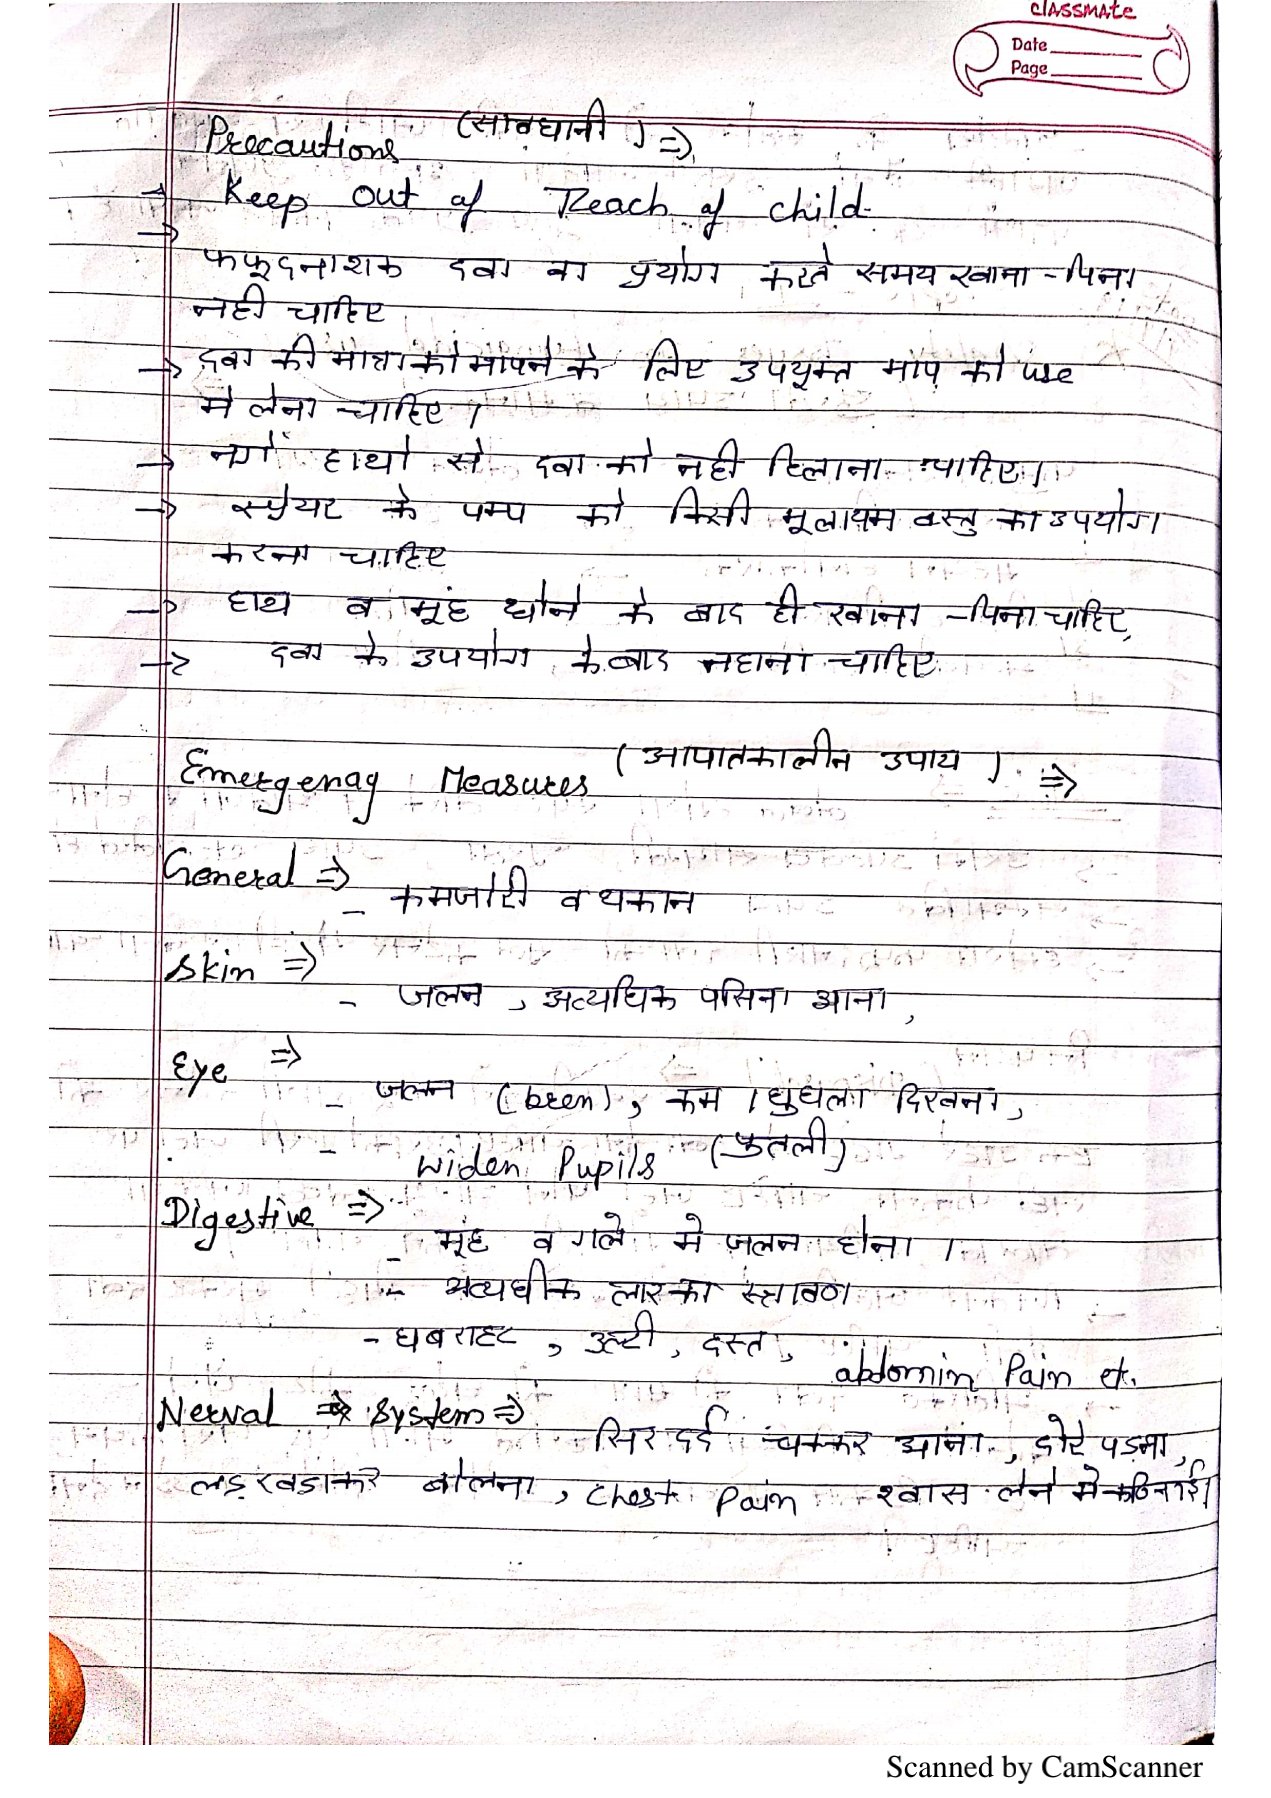 classmate
Date
Page
Precautions (सावधानी) ⇒
→ Keep out of Reach of child.
→
फफूदनाशक दवा का प्रयोग करते समय खाना-पिना
नही चाहिए
→ दवा की मात्रा को मापने के लिए उपयूक्त माप को use
मे लेना चाहिए ।
→ नगें हाथो से दवा को नही हिलाना चाहिए।
→ स्प्रेयर के पम्प को किसी मूलायम वस्तु का उपयोग
करना चाहिए
→ हाथ व मूंह धोने के बाद ही खाना-पिना चाहिए,
→ दवा के उपयोग के बाद नहाना चाहिए
Emergenag Measures (आपातकालीन उपाय) ⇒
General ⇒
- कमजोरी व थकान
Skin ⇒
- जलन, अत्यधिक पसिना आना,
Eye ⇒
- जलन (bren), कम।धुधला दिखना,
- widen Pupils (पुतली)
Digestive ⇒
- मूंह व गले मे जलन होना ।
- अत्यधीक लार का स्त्रावण
- घबराहट, उल्टी, दस्त, abdomin Pain et.
Nerval System ⇒
सिर दर्द चक्कर आना, दोरे पडना,
लड़खडाकर बोलना, chest Pain श्वास लेने मे कठिनाई।
Scanned by CamScanner